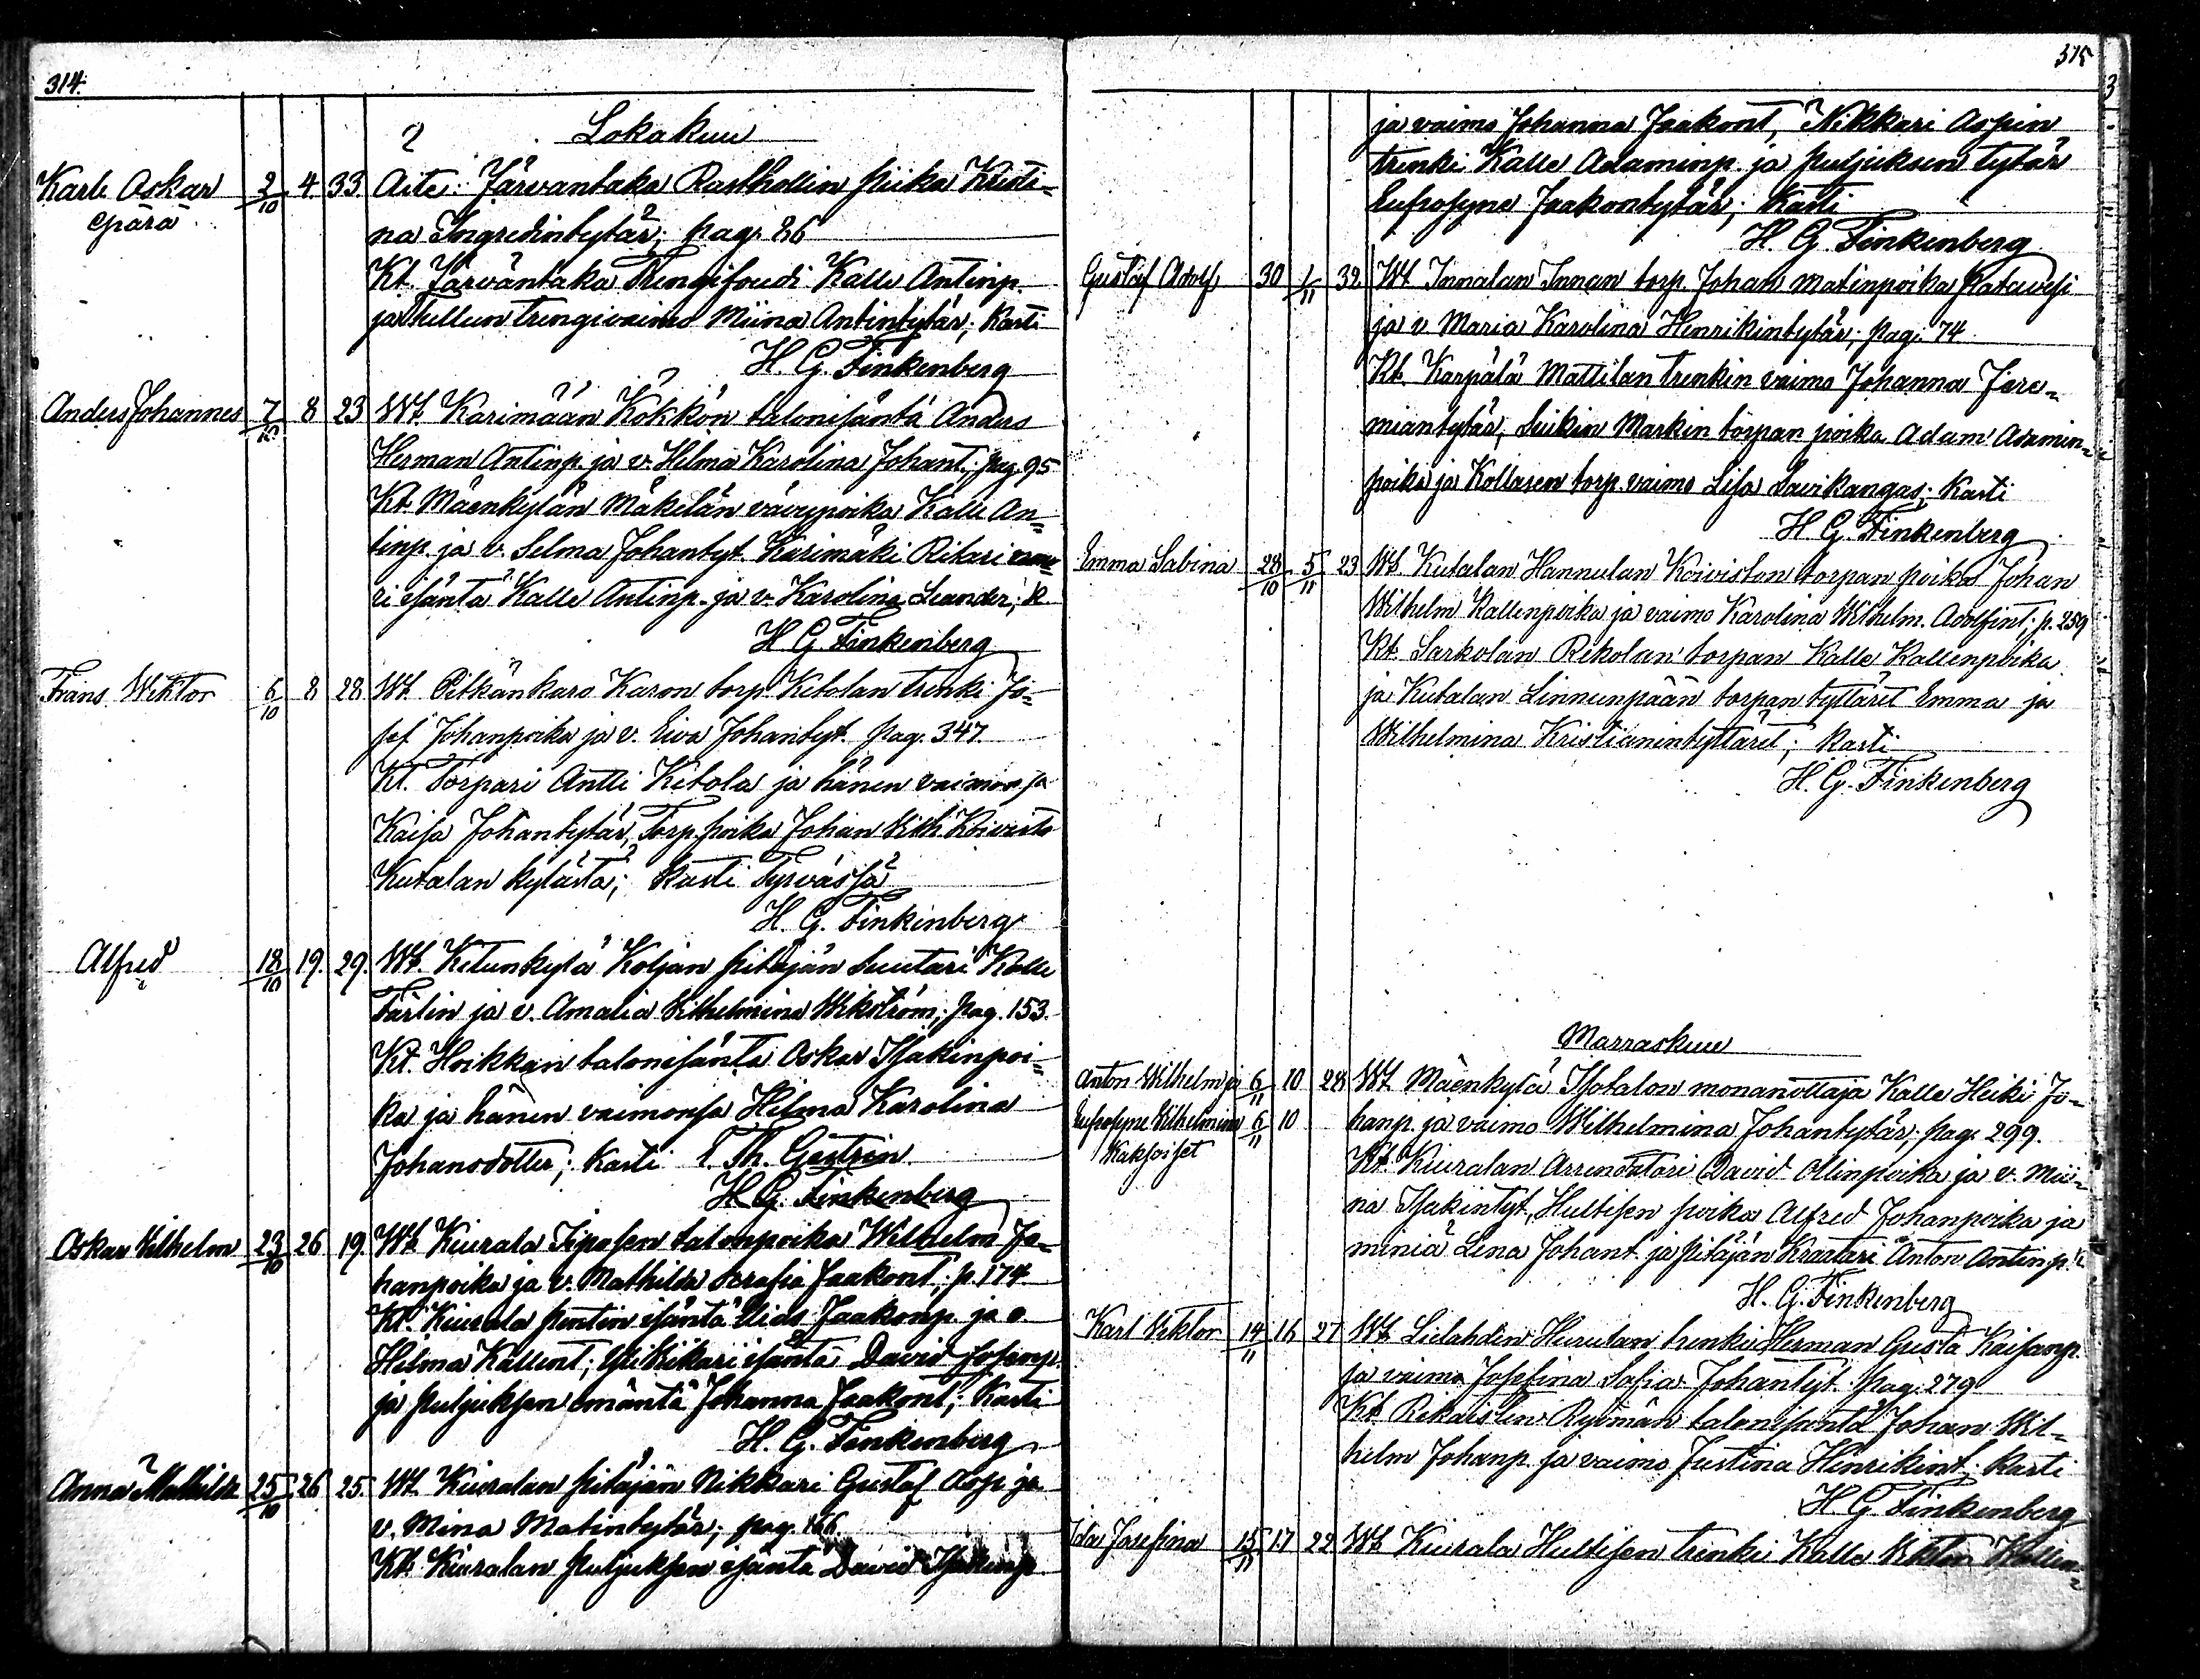 314.
Lokakuu
Karle Oskar 2/10 4. 33. Äite: Järventaka Rasthollin piika Kristi-
epärä na Ingredintytär; pag. 86
Kt. Järventaka Rengifoudi Kalle Antinp.
ja Tullun trengivaimo Miina Antintytär; Kasti
H. G. Finkenberg
Anders Johannes 7/10 8 23 Wt. Karimään Kökkön talonisäntä Anders
Herman Antinp. ja v. Helma Karolina Johant; pag. 95
Kt. Mäenkylän Mäkelän vävypoika Kalle An-
tinp. ja v. Selma Johantyt. Karimäki Ritari
ri isäntä Kalle Antinp. ja v. Karolina Leander; K.
H. G. Finkenberg
Frans Wiktor 6/10 8 28 Wt. Pitkänkaro Karon torp. Ketolan trenki Jo-
sef Johanpoika ja v. Eiva Johantyt. pag. 347.
Kt. Torpari Antti Ketola ja hänen vaimonsa
Kaisa Johantytär, Torp. poika Johan Wilh. Koivisto
Kutalan kylästä; Kasti Tyrväässä
H. G. Finkenberg
Alfred 18/10 19. 29. Wt. Ketunkylä Koljan pitäjän Suutari Kalle
Färlin ja v. Amalia Wilhelmina Wikström; pag. 153.
Kt. Hoikkan talonisäntä Oskar Isakinpoi-
ka ja hänen vaimonsa Hilma Karolina
Johansdotter; Kasti T. Th. Gestrin
H. G. Finkenberg
Oskar Vilhelm 23/10 26 19. Wt. Kiurala Siposen talonpoika Wilhelm Jo-
hanpoika ja v. Mathilda Serafia Jaakont; p. 174
Kt. Kiurala Pentin isäntä Jaakonp. ja v.
Helma Kallent; isäntä David Josinp.
ja Putjuksen emäntä Johanna Jaakont; Kasti
H. G. Finkenberg
Anna Mathilda 25/10 26 25. Wt. Kiuralan pitäjän Nikkari Gustaf Asp ja
v. Mina Matintytär; pag. 166.
Kt. Kiuralan Putjuksen isäntä David Isakinp.
315
ja vaimo Johanna Jaakont, Nikkari Aspin
trenki Kalle Adaminp. ja Putjuksen tytär
Eufrosyne Jaakontytär; Kasti
H. G. Finkenberg
Gustaf Adolf 30 1/11 32 Wt. Innalan Innan torp. Johan Matinpoika Patavesi
ja v. Maria Karolina Henrikintytär; pag. 74
Kt. Karpälä Mattilan trenkin vaimo Johanna Jere-
miantytär, Luikin Markin torpan poika Adam Adamin-
poika ja Kottasen torp. vaimo Lisa Savikangas; Kasti
H. G. Finkenberg
Emma Sabina 28/10 5/11 23 Wt. Kutalan Hannulan Koiviston torpan poika Johan
Wilhelm Kallenpoika ja vaimo Karolina Wilhelm. Adolfint; p. 259
Kt. Sarkolan Rekolan torpan Kalle Kallenpoika
ja Kutalan Linnunpään torpan tyttäret Emma ja
Wilhelmina Kristianintyttäret; Kasti
H. G. Finkenberg
Marraskuu
Anton Wilhelm ja 6/11 10 28 Wt. Mäenkylä Isotalon monanottaja Kalle Heiki Jo-
Eufrosyne Wilhelmina 6/11 10 hanp. ja vaimo Wilhelmina Johantytär; pag. 299.
Kaksoiset Kt. Kiuralan Arrendatori David Ollinpoika ja v. Mii-
na Isakintyt, Hultisen poika Alfred Johanpoika ja
miniä Lena Johant. ja pitäjän Kraatari Anton Antinp. K
H. G. Finkenberg
Karl Viktor 14/11 16 27 Wt. Lielahden Hurulan trenki Herman Gusta Kaisanp.
ja vaimo Josefina Sofia Johantyt. pag. 279
Kt. Rekoisten Ryömän talonisäntä Johan Wil-
helm Johanp. ja vaimo Justina Henrikint; Kasti
H. G. Finkenberg
Ida Josefina 15/11 17 22 Wt. Kiurala Hultisen trenki Kalle Viktor Kallen-